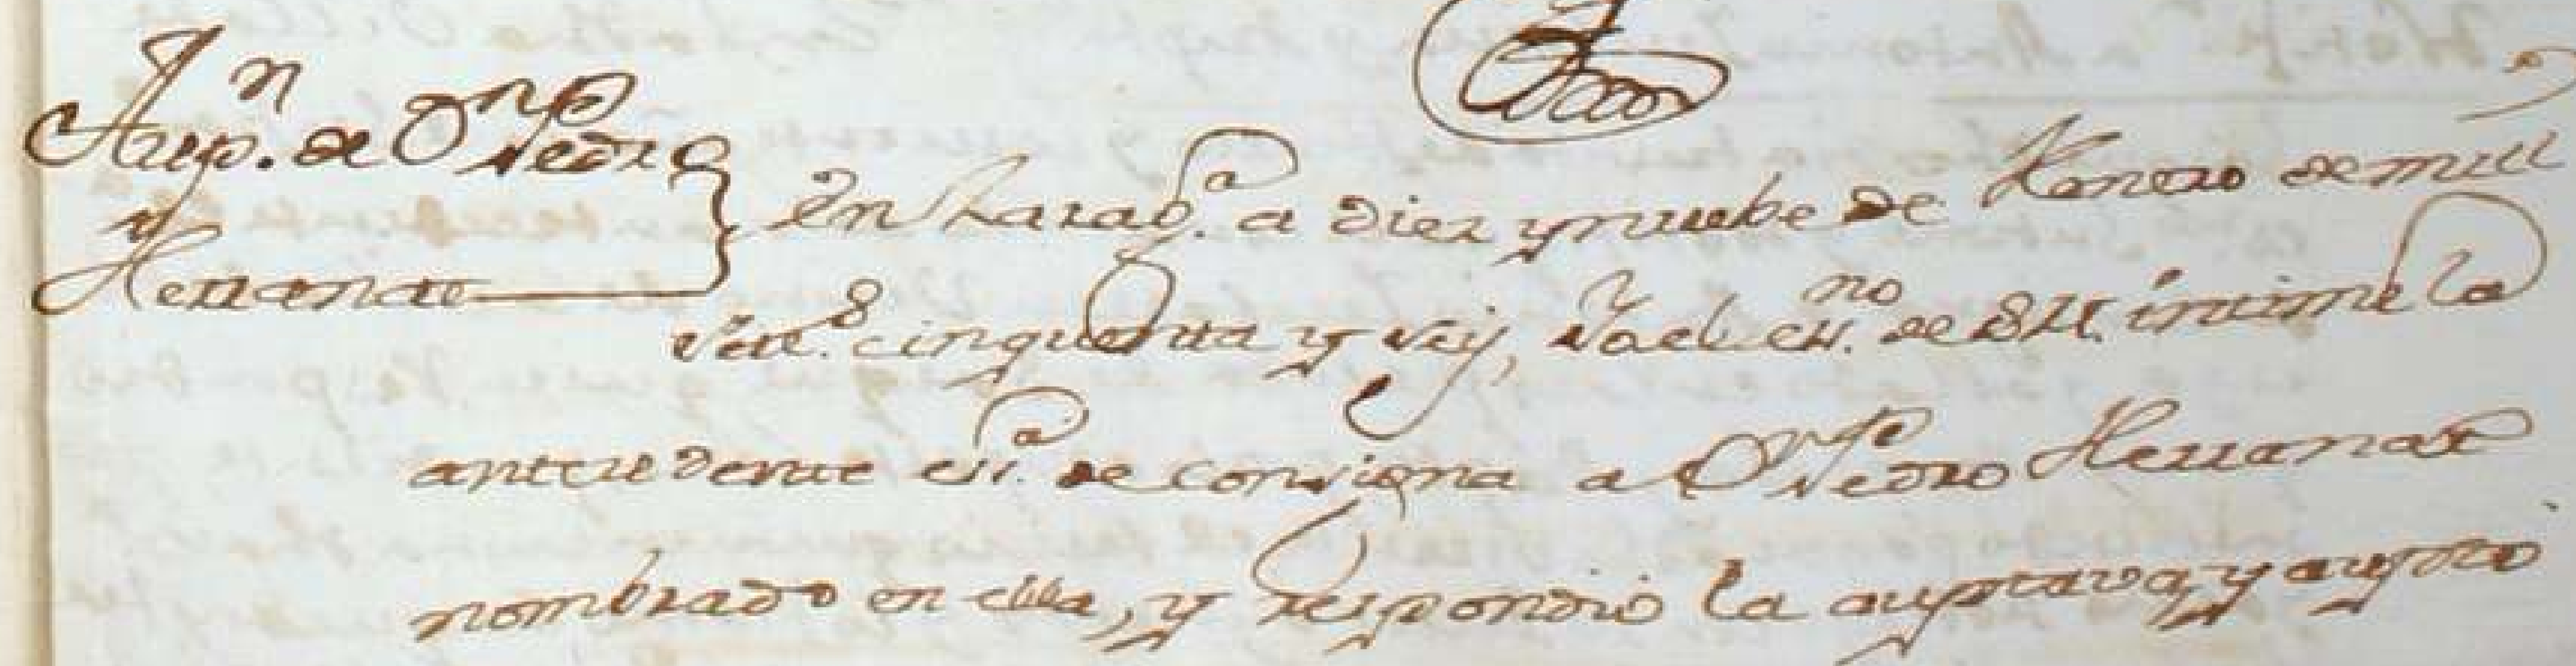 Acep.n de Dn Pedro
y
Hernande
En Zarag.a a diez y nuebe de Henero de mill
Sete.s cinquenta y seis, Yo el ess.no de S.M. intime la
antecedente ess.a de consigna a Dn Pedro Hernand
nombrado en ella, y respondio la aceptava, y acepto